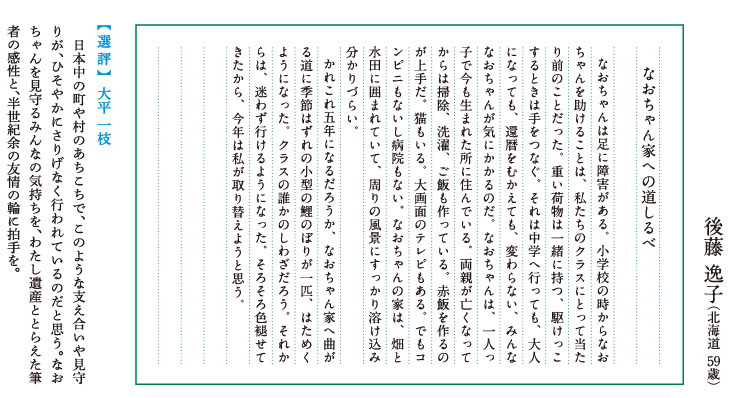 後藤 逸子(北海道 59歳)
なおちゃん家への道しるべ
なおちゃんは足に障害がある。小学校の時からなお
ちゃんを助けることは、私たちのクラスにとって当た
り前のことだった。重い荷物は一緒に持つ、駆けっこ
するときは手をつなぐ。それは中学へ行っても、大人
になっても、還暦をむかえても、変わらない、みんな
なおちゃんが気にかかるのだ。なおちゃんは、一人っ
子で今も生まれた所に住んでいる。両親が亡くなって
からは掃除、洗濯、ご飯も作っている。赤飯を作るの
が上手だ。猫もいる。大画面のテレビもある。でもコ
ンビニもないし病院もない。なおちゃんの家は、畑と
水田に囲まれていて、周りの風景にすっかり溶け込み
分かりづらい。
かれこれ五年になるだろうか、なおちゃん家へ曲が
る道に季節はずれの小型の鯉のぼりが一匹、はためく
ようになった。クラスの誰かのしわざだろう。それか
らは、迷わず行けるようになった。そろそろ色褪せて
きたから、今年は私が取り替えようと思う。
【選評】大平 一枝
日本中の町や村のあちこちで、このような支え合いや見守
りが、ひそやかにさりげなく行われているのだと思う。なお
ちゃんを見守るみんなの気持ちを、わたし遺産ととらえた筆
者の感性と、半世紀余の友情の輪に拍手を。